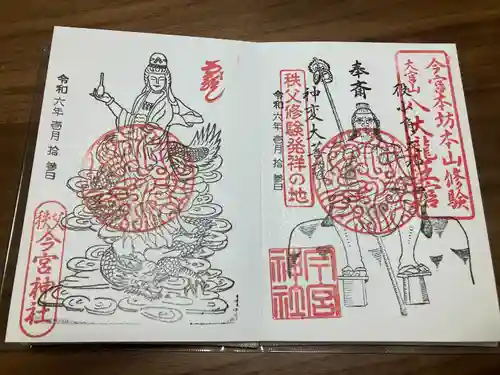 今宮本坊本山修験
大宮山
八大龍王宮
奉斎
神変大菩薩
秩父修験発祥の地
令和六年壱月拾参日
今宮神社
令和六年壱月拾参日
秩父
今宮神社